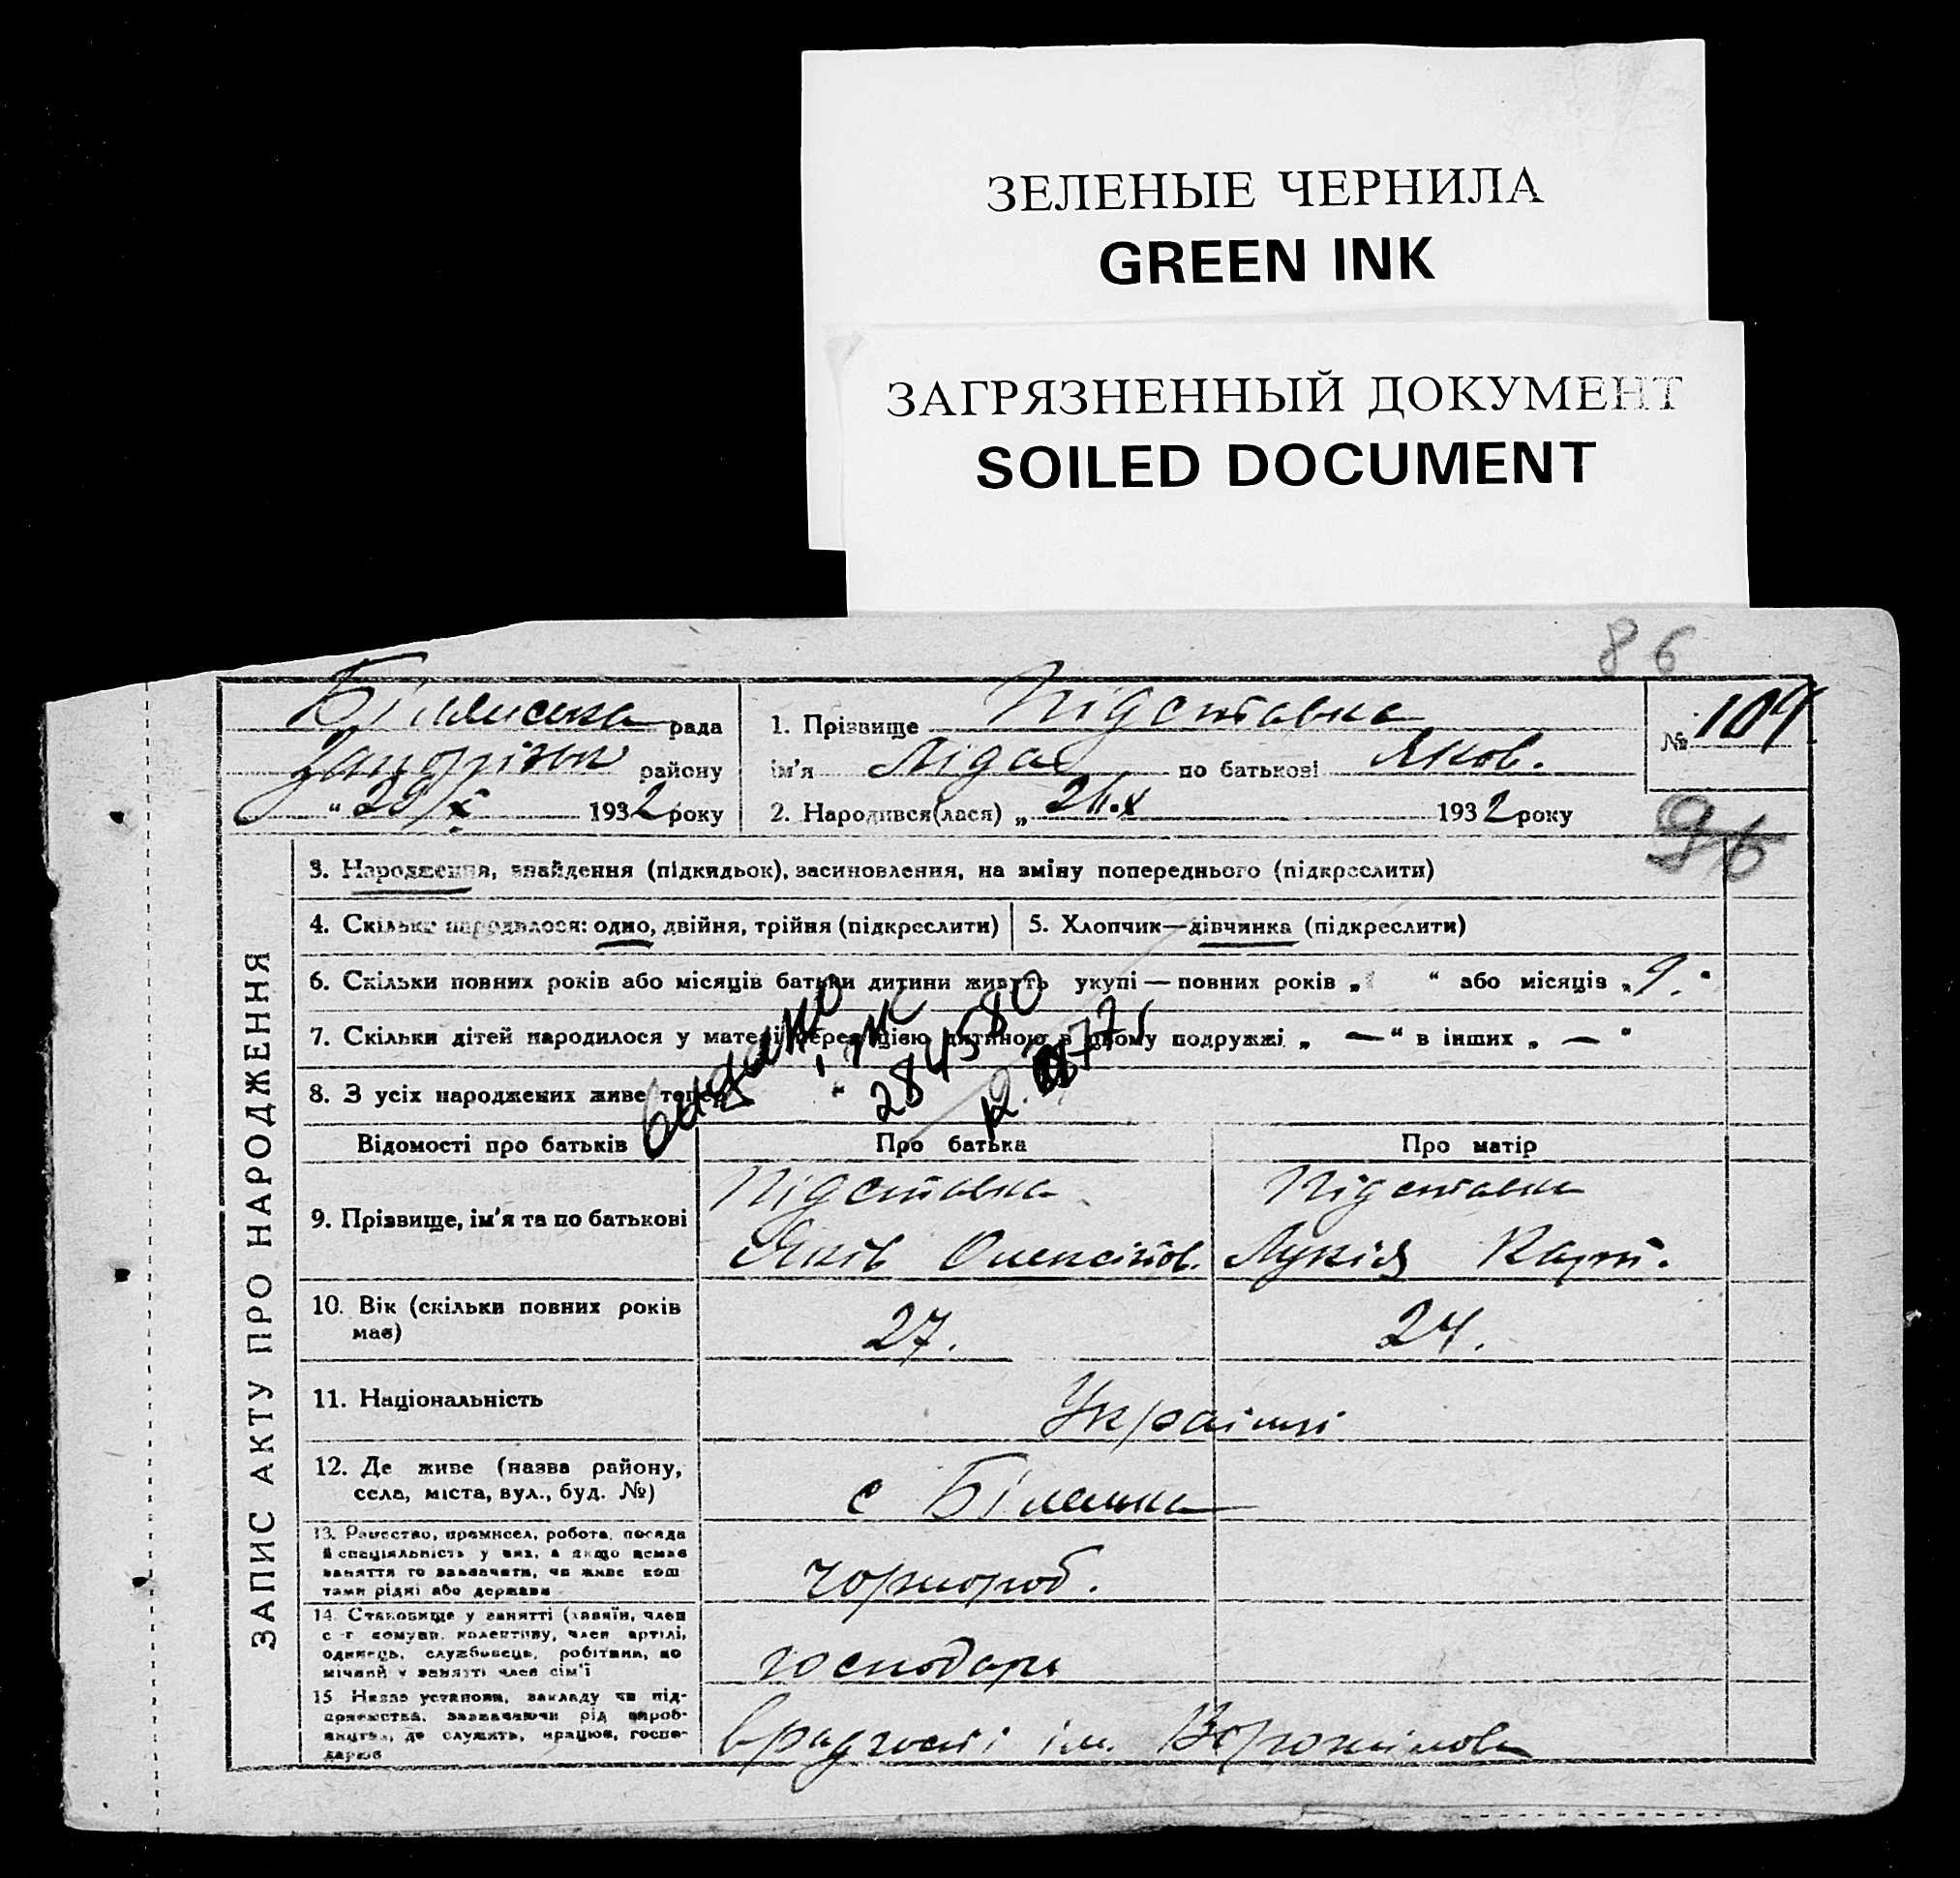 ЗЕЛЕНЫЕ ЧЕРНИЛА
GREEN INK
ЗАГРЯЗНЕННЫЙ ДОКУМЕНТ
SOILED DOCUMENT
86
рада
району
1932 року
1. Прізвище Підставка
ім'я Ліда по батькові Яков.
2. Народився(лася) „ 26.X 1932 року
№ 109
96
ЗАПИС АКТУ ПРО НАРОДЖЕННЯ
3. Народження, знайдення (підкидьок), засиновлення, на зміну попереднього (підкреслити)
4. Скільки народилося: одно, двійня, трійня (підкреслити)
5. Хлопчик—дівчинка (підкреслити)
6. Скільки повних років або місяців батьки дитини живуть укупі — повних років „ “ або місяців „ 9.
7. Скільки дітей народилося у матері перед цією дитиною в цьому подружжі „ — “ в інших „ — “
8. З усіх народжених живе тепер
видано
284580
Відомості про батьків
Про батька
Про матір
9. Прізвище, ім'я та по батькові
Підставка
Яків Олексійов.
Підставка
Лукія Карп.
10. Вік (скільки повних років має)
27.
24.
11. Національність
Українці
12. Де живе (назва району,
села, міста, вул., буд. №)
с Біленька
13. Ремество, промисел, робота, посада
й спеціяльність у них, а якщо немає
заняття то зазначати, чи живе кош
тами рідні або держави
чорнороб.
14. Становище у занятті (хазяїн, член
с-г комуни, колективу, член артілі,
одинець, службовець, робітник, по
мічний у занятті член сім'ї
господарь
15 Назва установи, закладу чи під-
приємства, зазначаючи рід вироб-
ництва, де служить, працює, госпо-
дарює
в радгоспі ім. Ворошілова